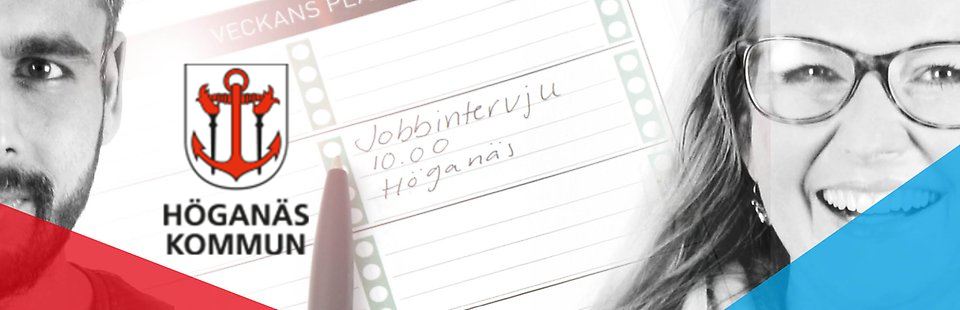 VECKANS PLA
Jobbintervju
10.00
Höganäs
HÖGANÄS
KOMMUN